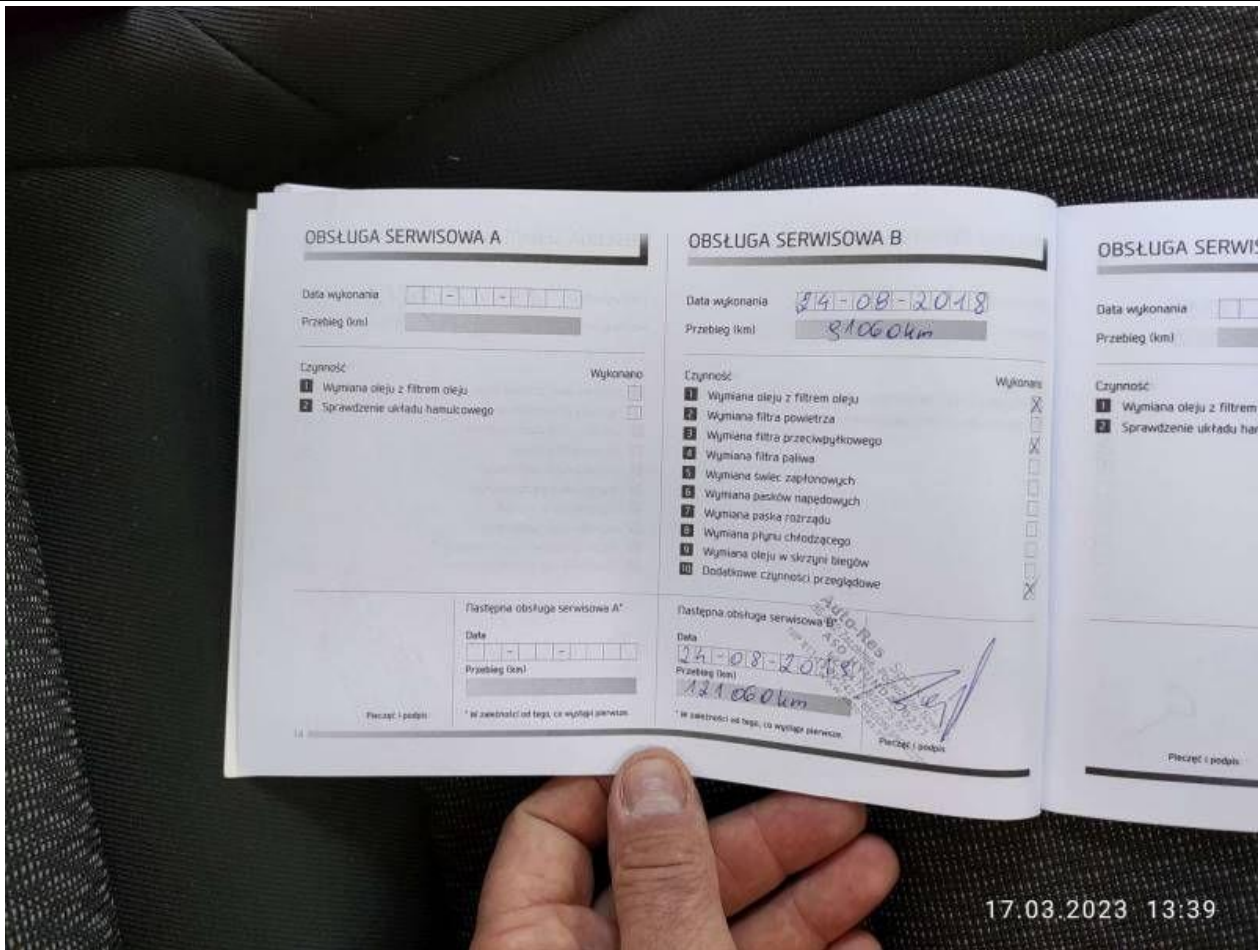 OBSŁUGA SERWISOWA A
Data wykonania
Przebieg (km)
Czynność Wykonano
1 Wymiana oleju z filtrem oleju
2 Sprawdzenie układu hamulcowego
Następna obsługa serwisowa A*
Data
Przebieg (km)
Pieczęć i podpis
* W zależności od tego, co wystąpi pierwsze.
14
OBSŁUGA SERWISOWA B
Data wykonania 24-08-2018
Przebieg (km) 91060km
Czynność Wykonano
1 Wymiana oleju z filtrem oleju X
2 Wymiana filtra powietrza
3 Wymiana filtra przeciwpyłkowego X
4 Wymiana filtra paliwa
5 Wymiana świec zapłonowych
6 Wymiana pasków napędowych
7 Wymiana paska rozrządu
8 Wymiana płynu chłodzącego
9 Wymiana oleju w skrzyni biegów
10 Dodatkowe czynności przeglądowe X
Następna obsługa serwisowa B*
Data
24-08-201
Przebieg (km)
121 060km
* W zależności od tego, co wystąpi pierwsze.
Auto-Res
ASO
Pieczęć i podpis
OBSŁUGA SERWIS
Data wykonania
Przebieg (km)
Czynność
1 Wymiana oleju z filtrem
2 Sprawdzenie układu ham
Pieczęć i podpis
17.03.2023 13:39